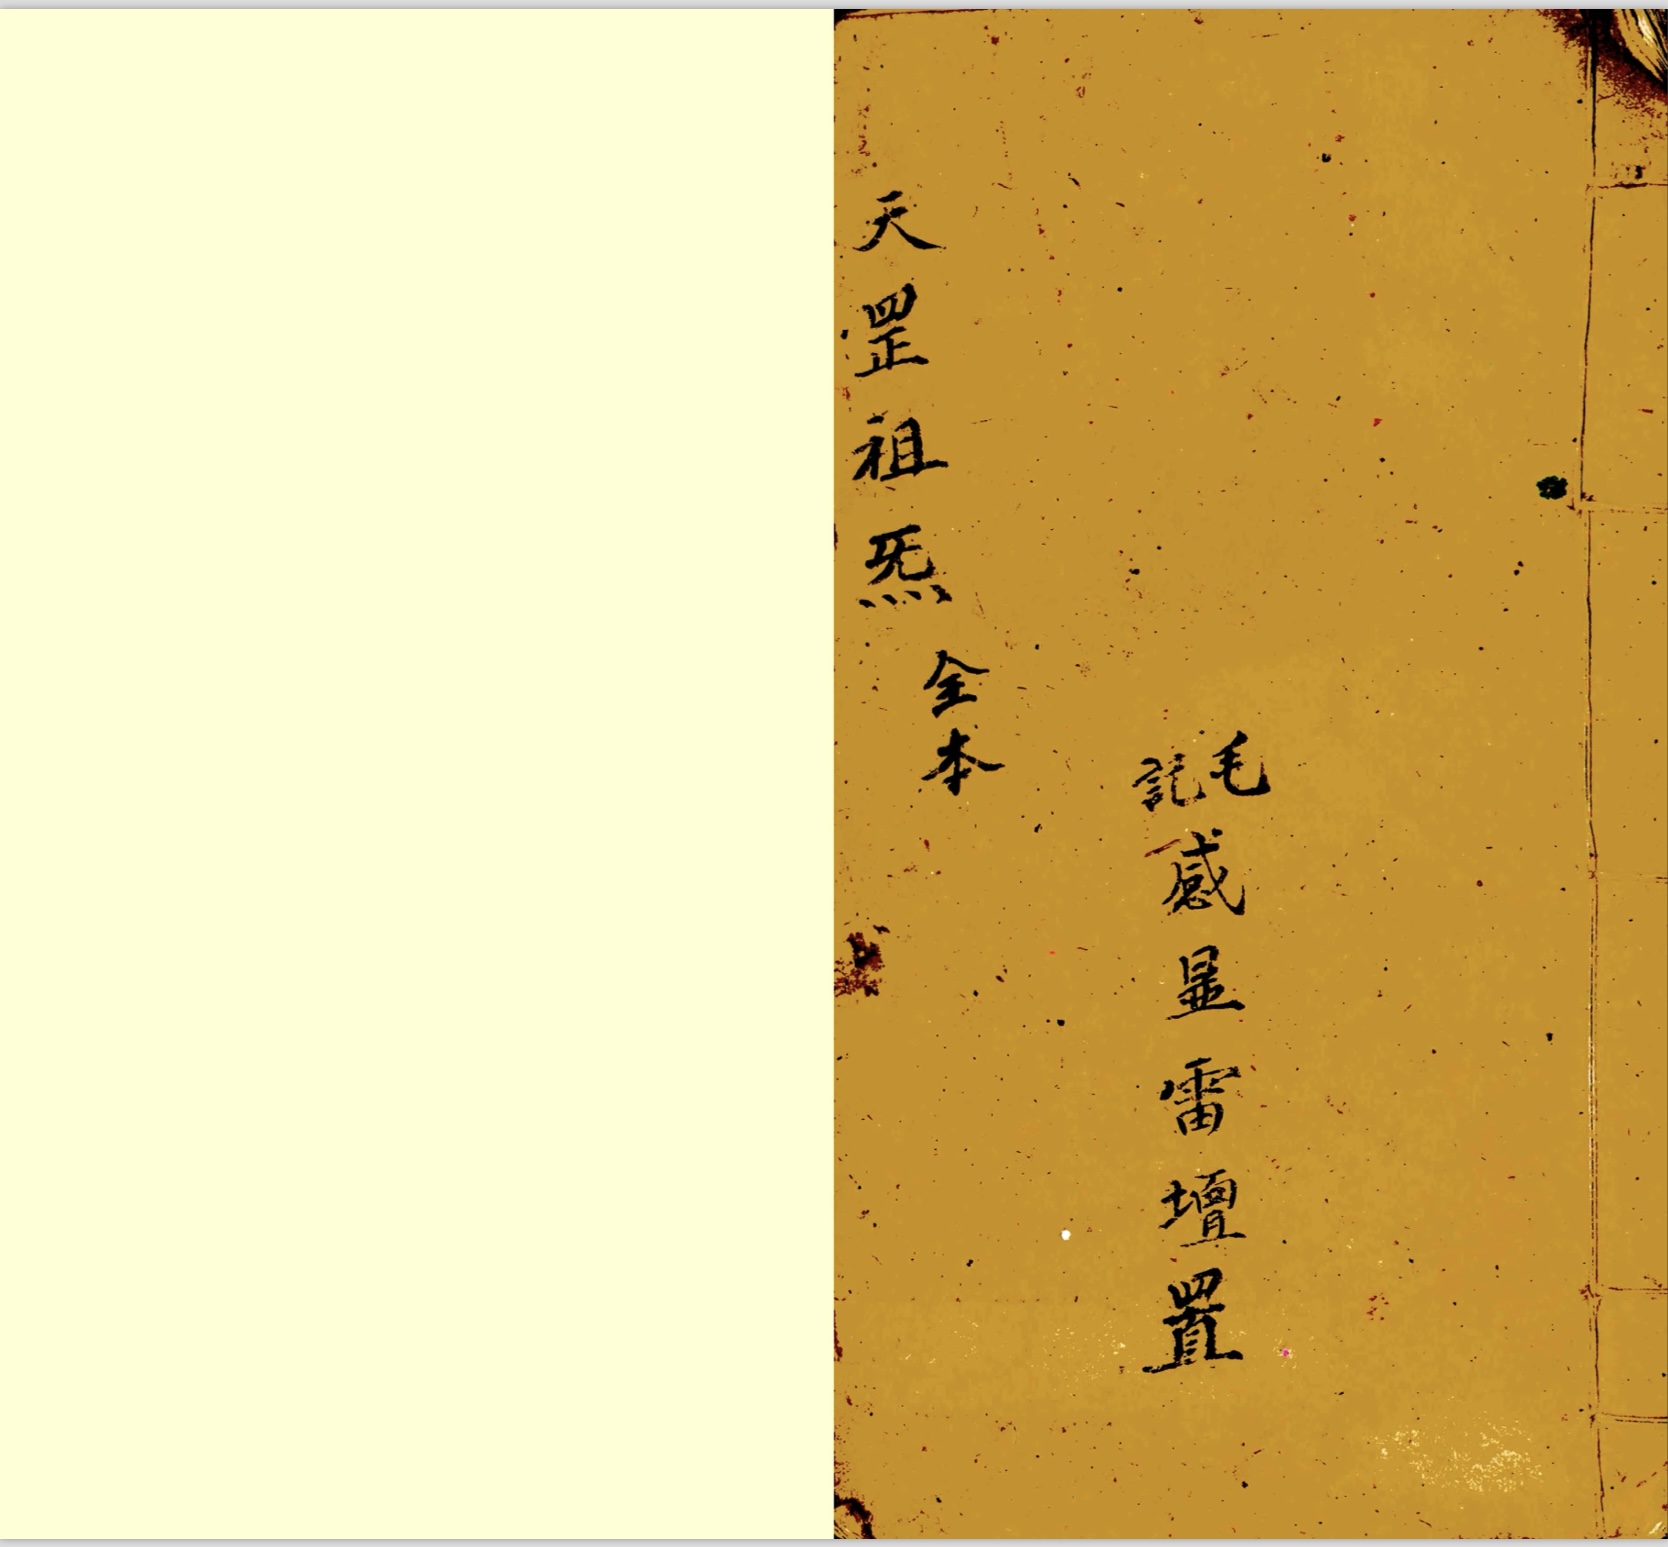 毛
託
感显雷壇置
天罡祖炁
全本